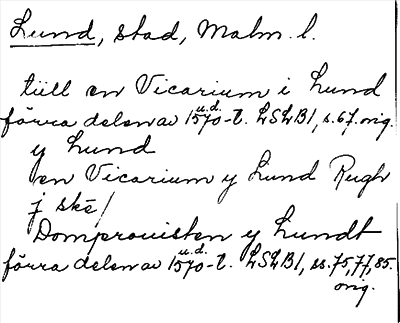 Lund, stad, Malm. l.
tiill en Vicarium i Lund
förra delen av 1570-t. u.d. LSLB1, s. 67. orig.
y Lund
en Vicarium y Lund
j skē/
Domprouisten y Lundt
förra delen av 1570-t. u.d. LSLB1, ss. 75, 77, 85.
orig.